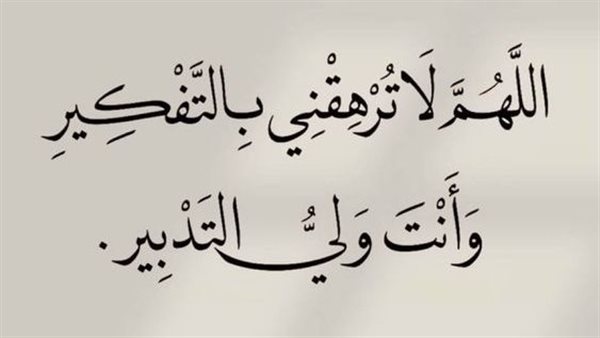 اللَّهُمَّ لَا تُرْهِقْنِي بِالتَّفْكِيرِ
وَأَنْتَ وَلِيُّ التَدْبِير .